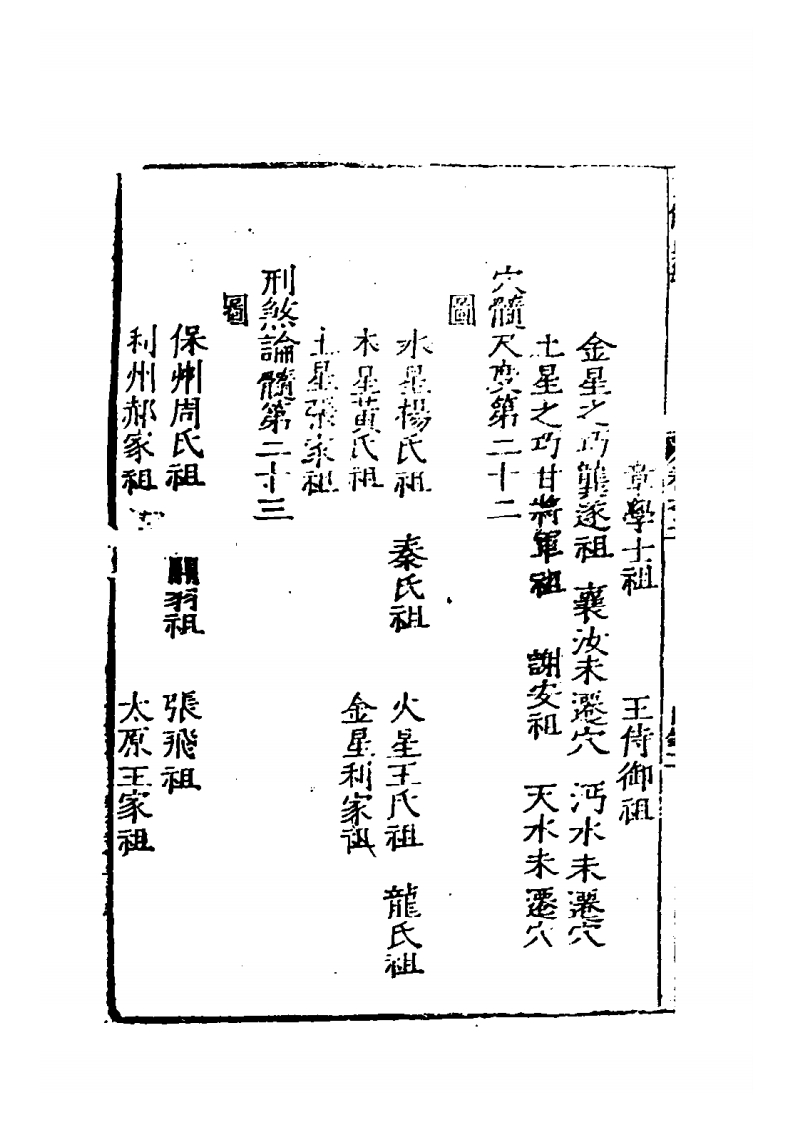 章學士祖　王侍御祖
金星之巧龔遂祖　襄汝未遷穴　沔水未遷穴
土星之巧甘將軍祖　謝安祖　天水未遷穴
穴髓尺度第二十二
圖
水星楊氏祖　秦氏祖　火星王氏祖　龍氏祖
木星黃氏祖　金星利家祖
土星張家祖
刑煞論髓第二十三
圖
保州周氏祖　羽祖　張飛祖
利州郝家祖　太原王家祖